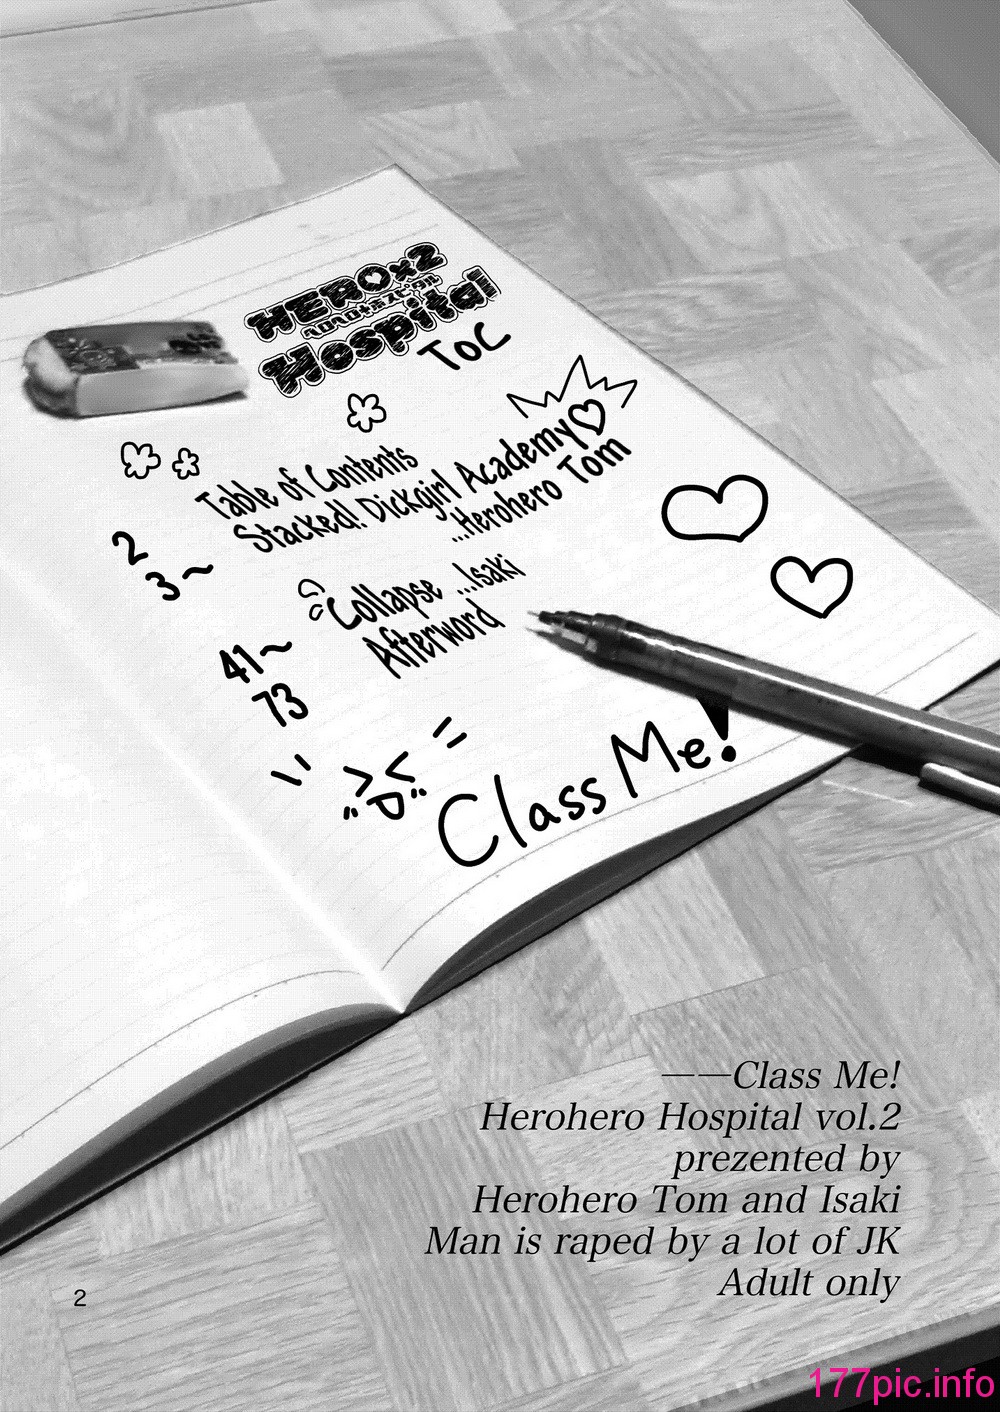 HEROx2
ヘロヘロホスピタル
Hospital
TOC
2 Table of Contents
3~ Stacked! Dickgirl Academy♡
...Herohero Tom
41~ Collapse ...Isaki
73 Afterword
Class Me!
——Class Me!
Herohero Hospital vol.2
prezented by
Herohero Tom and Isaki
Man is raped by a lot of JK
Adult only
2
177pic.info